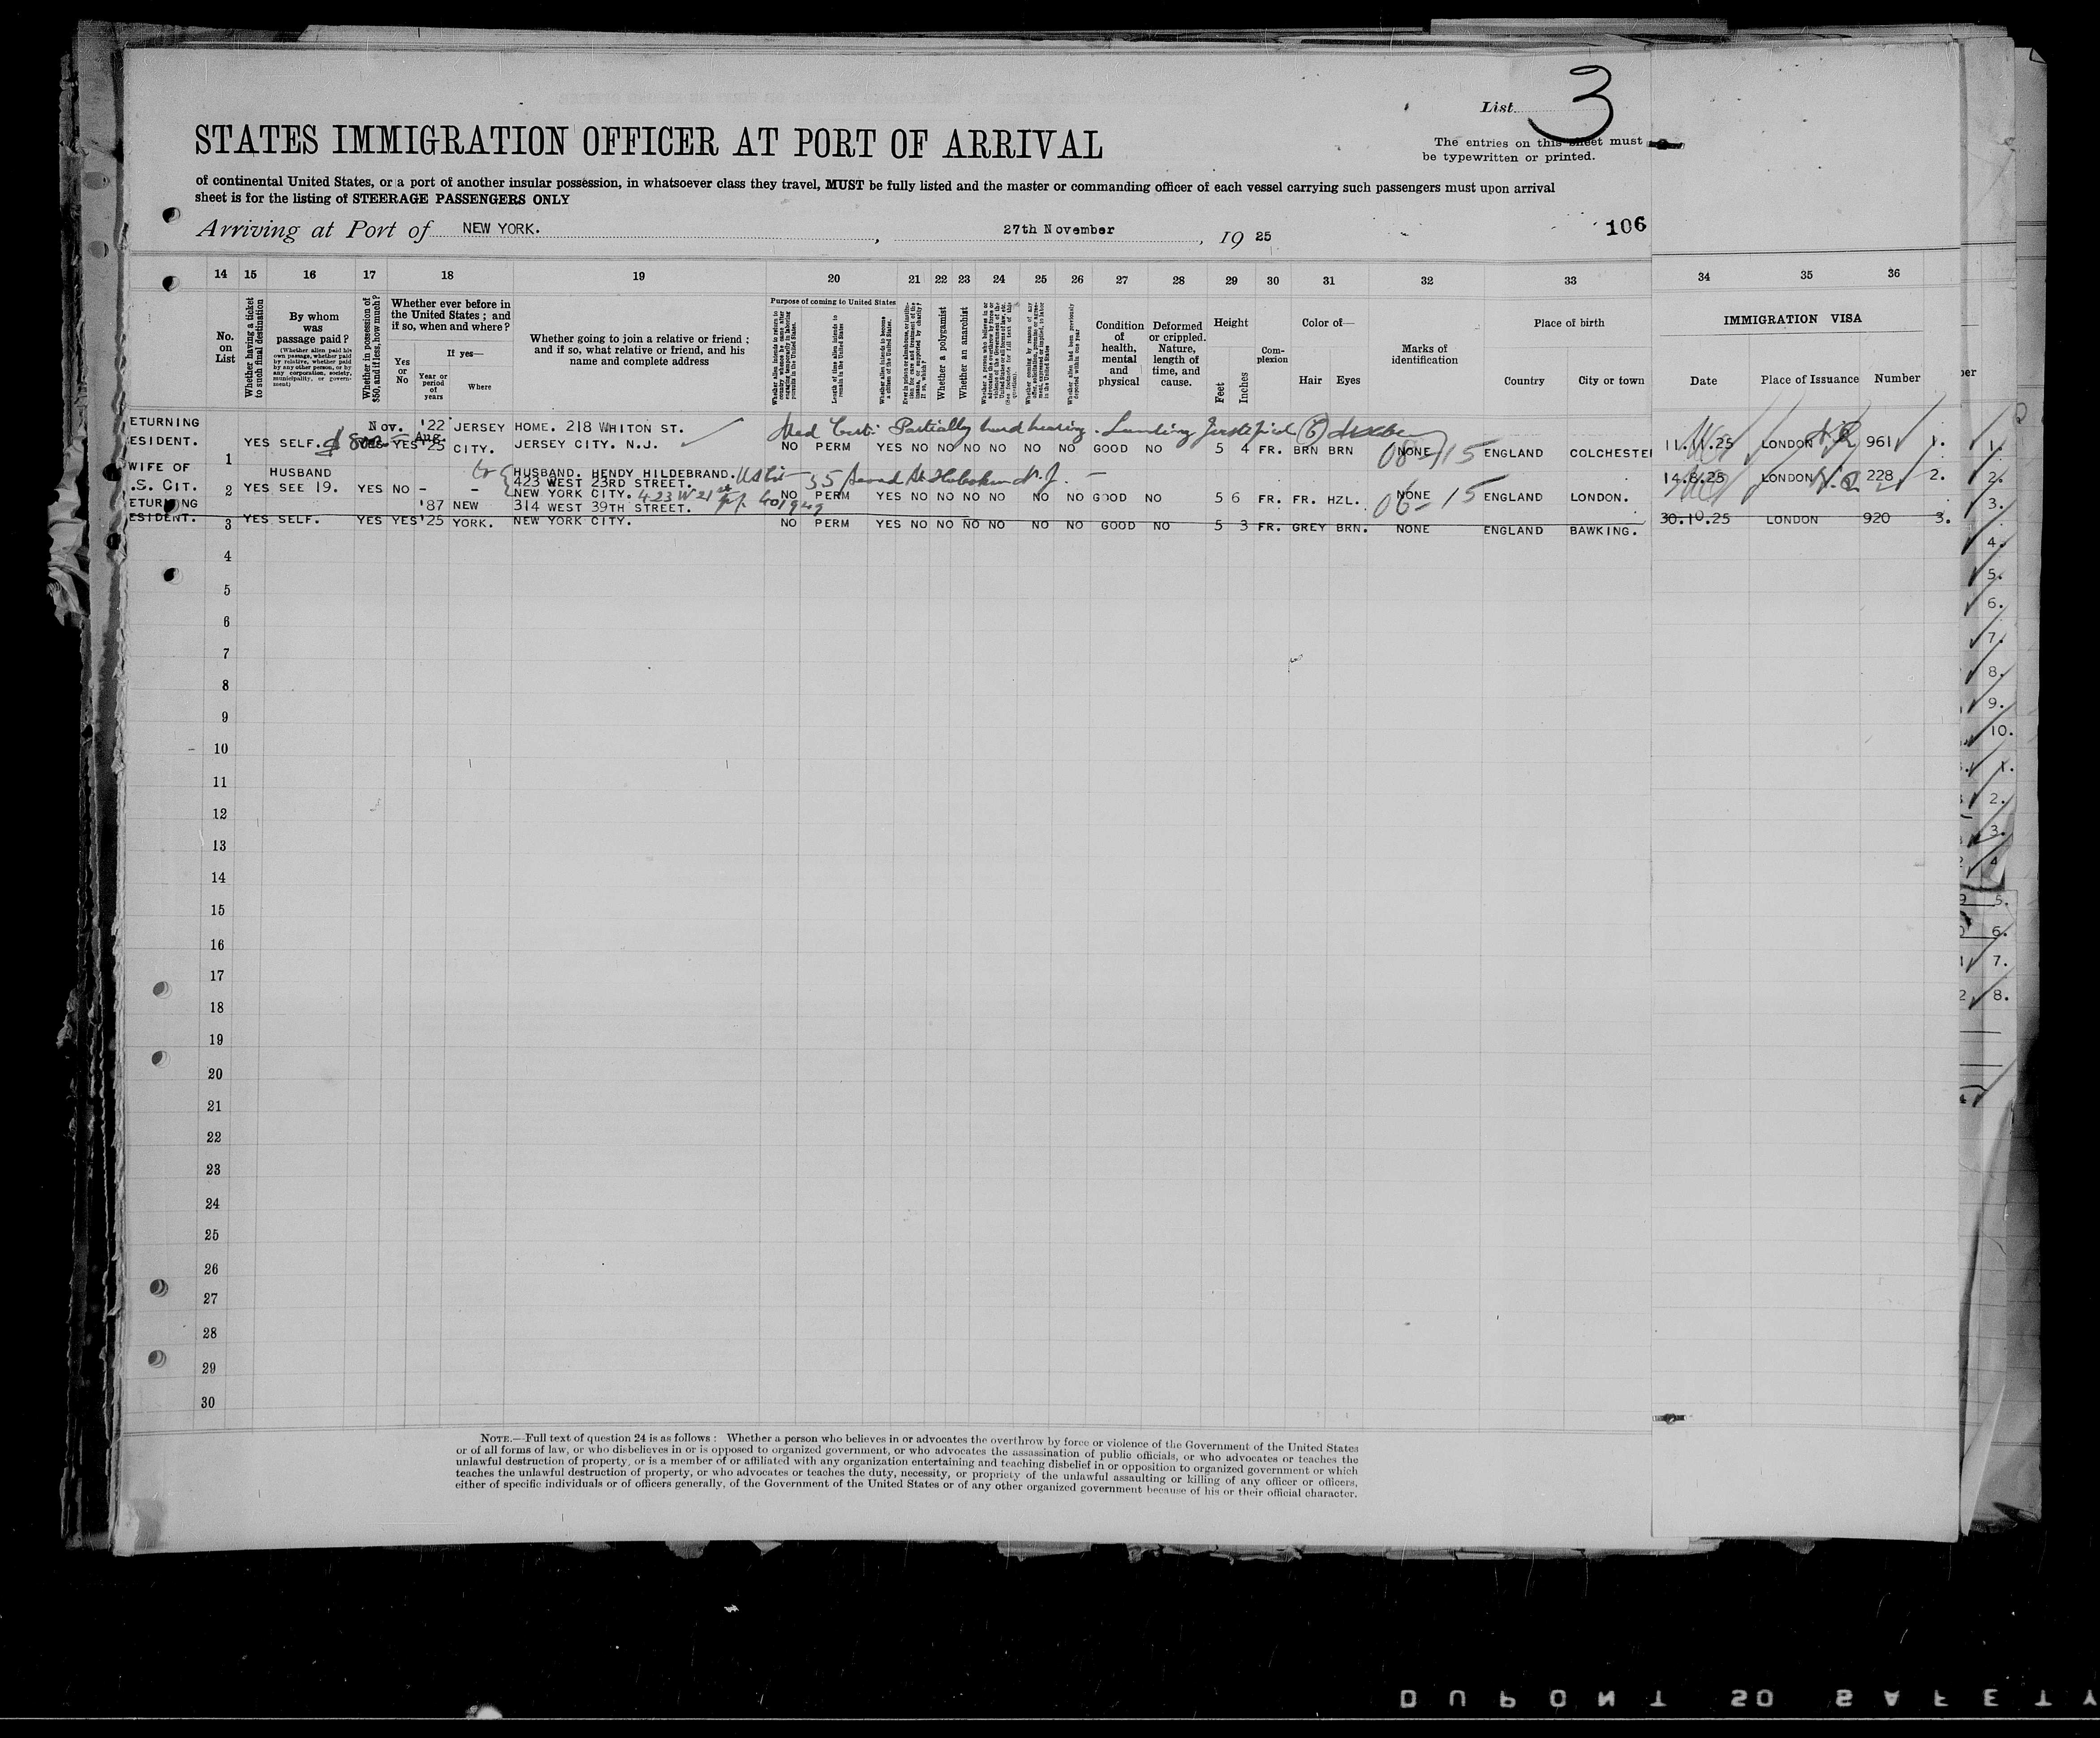 List 3
STATES IMMIGRATION OFFICER AT PORT OF ARRIVAL
The entries on this sheet must
be typewritten or printed.
of continental United States, or a port of another insular possession, in whatsoever class they travel, MUST be fully listed and the master or commanding officer of each vessel carrying such passengers must upon arrival
sheet is for the listing of STEERAGE PASSENGERS ONLY
Arriving at Port of NEW YORK. , 27th November , 19 25
106
14 15 16 17 18 19 20 21 22 23 24 25 26 27 28 29 30 31 32 33 34 35 36
No. on List
Whether having a ticket to such final destination
By whom was passage paid?
(Whether alien paid his own passage, whether paid by relative, whether paid by any other person, or by any corporation, society, municipality, or government)
Whether in possession of $50, and if less, how much?
Whether ever before in the United States; and if so, when and where?
Yes or No
If yes—
Year or period of years
Where
Whether going to join a relative or friend; and if so, what relative or friend, and his name and complete address
Purpose of coming to United States
Length of time alien intends to remain in the United States
Whether alien intends to become a citizen of the United States.
Whether a polygamist
Whether an anarchist
Condition of health, mental and physical
Deformed or crippled. Nature, length of time, and cause.
Height
Feet
Inches
Complexion
Color of—
Hair Eyes
Marks of identification
Place of birth
Country City or town
IMMIGRATION VISA
Date Place of Issuance Number
Med Cert: Partially hard hearing. Landing
ETURNING Nov. '22 JERSEY HOME. 218 WHITON ST.
ESIDENT. 1 YES SELF. YES YES Aug. '25 CITY. JERSEY CITY. N.J. NO PERM YES NO NO NO NO NO NO GOOD NO 5 4 FR. BRN BRN NONE ENGLAND COLCHESTE 11.11.25 LONDON 961 1.
WIFE OF HUSBAND HUSBAND. HENDY HILDEBRAND. 35 Hoboken N.J.
.S. CIT. 2 YES SEE 19. YES NO - - 423 WEST 23RD STREET.
NEW YORK CITY. 423 W 21st NO PERM YES NO NO NO NO NO NO GOOD NO 5 6 FR. FR. HZL. NONE ENGLAND LONDON. 14.8.25 LONDON 228 2.
ETURNING '87 NEW 314 WEST 39TH STREET.
ESIDENT. 3 YES SELF. YES YES '25 YORK. NEW YORK CITY. NO PERM YES NO NO NO NO NO NO GOOD NO 5 3 FR. GREY BRN. NONE ENGLAND BAWKING. 30.10.25 LONDON 920 3.
4
5
6
7
8
9
10
11
12
13
14
15
16
17
18
19
20
21
22
23
24
25
26
27
28
29
30
NOTE.—Full text of question 24 is as follows: Whether a person who believes in or advocates the overthrow by force or violence of the Government of the United States
or of all forms of law, or who disbelieves in or is opposed to organized government, or who advocates the assassination of public officials, or who advocates or teaches the
unlawful destruction of property, or is a member of or affiliated with any organization entertaining and teaching disbelief in or opposition to organized government or which
teaches the unlawful destruction of property, or who advocates or teaches the duty, necessity, or propriety of the unlawful assaulting or killing of any officer or officers,
either of specific individuals or of officers generally, of the Government of the United States or of any other organized government because of his or their official character.
DUPONT 50 SAFETY